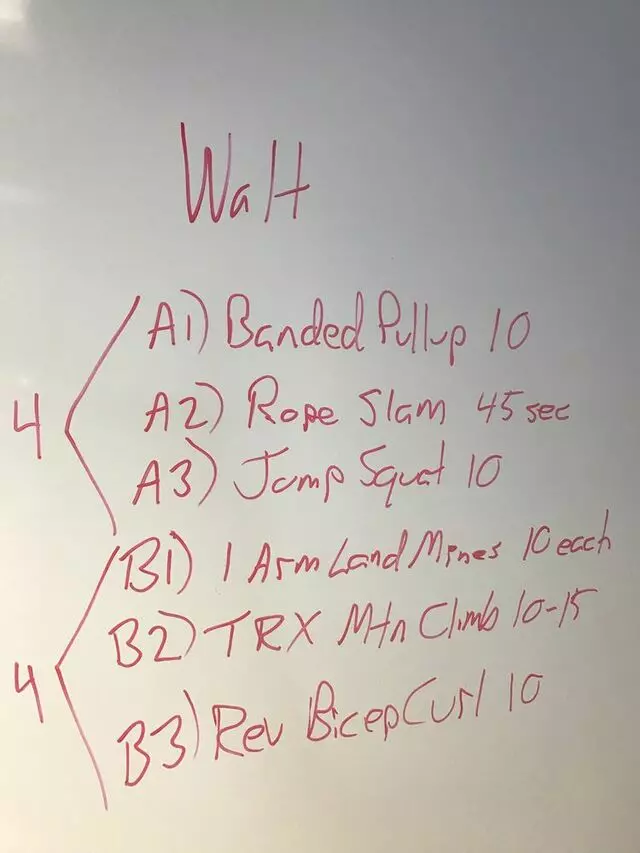 Walt
A1) Banded Pullup 10
4
A2) Rope Slam 45 sec
A3) Jump Squat 10
B1) 1 Arm Land Mines 10 each
B2) TRX Mtn Climb 10-15
4
B3) Rev Bicep Curl 10